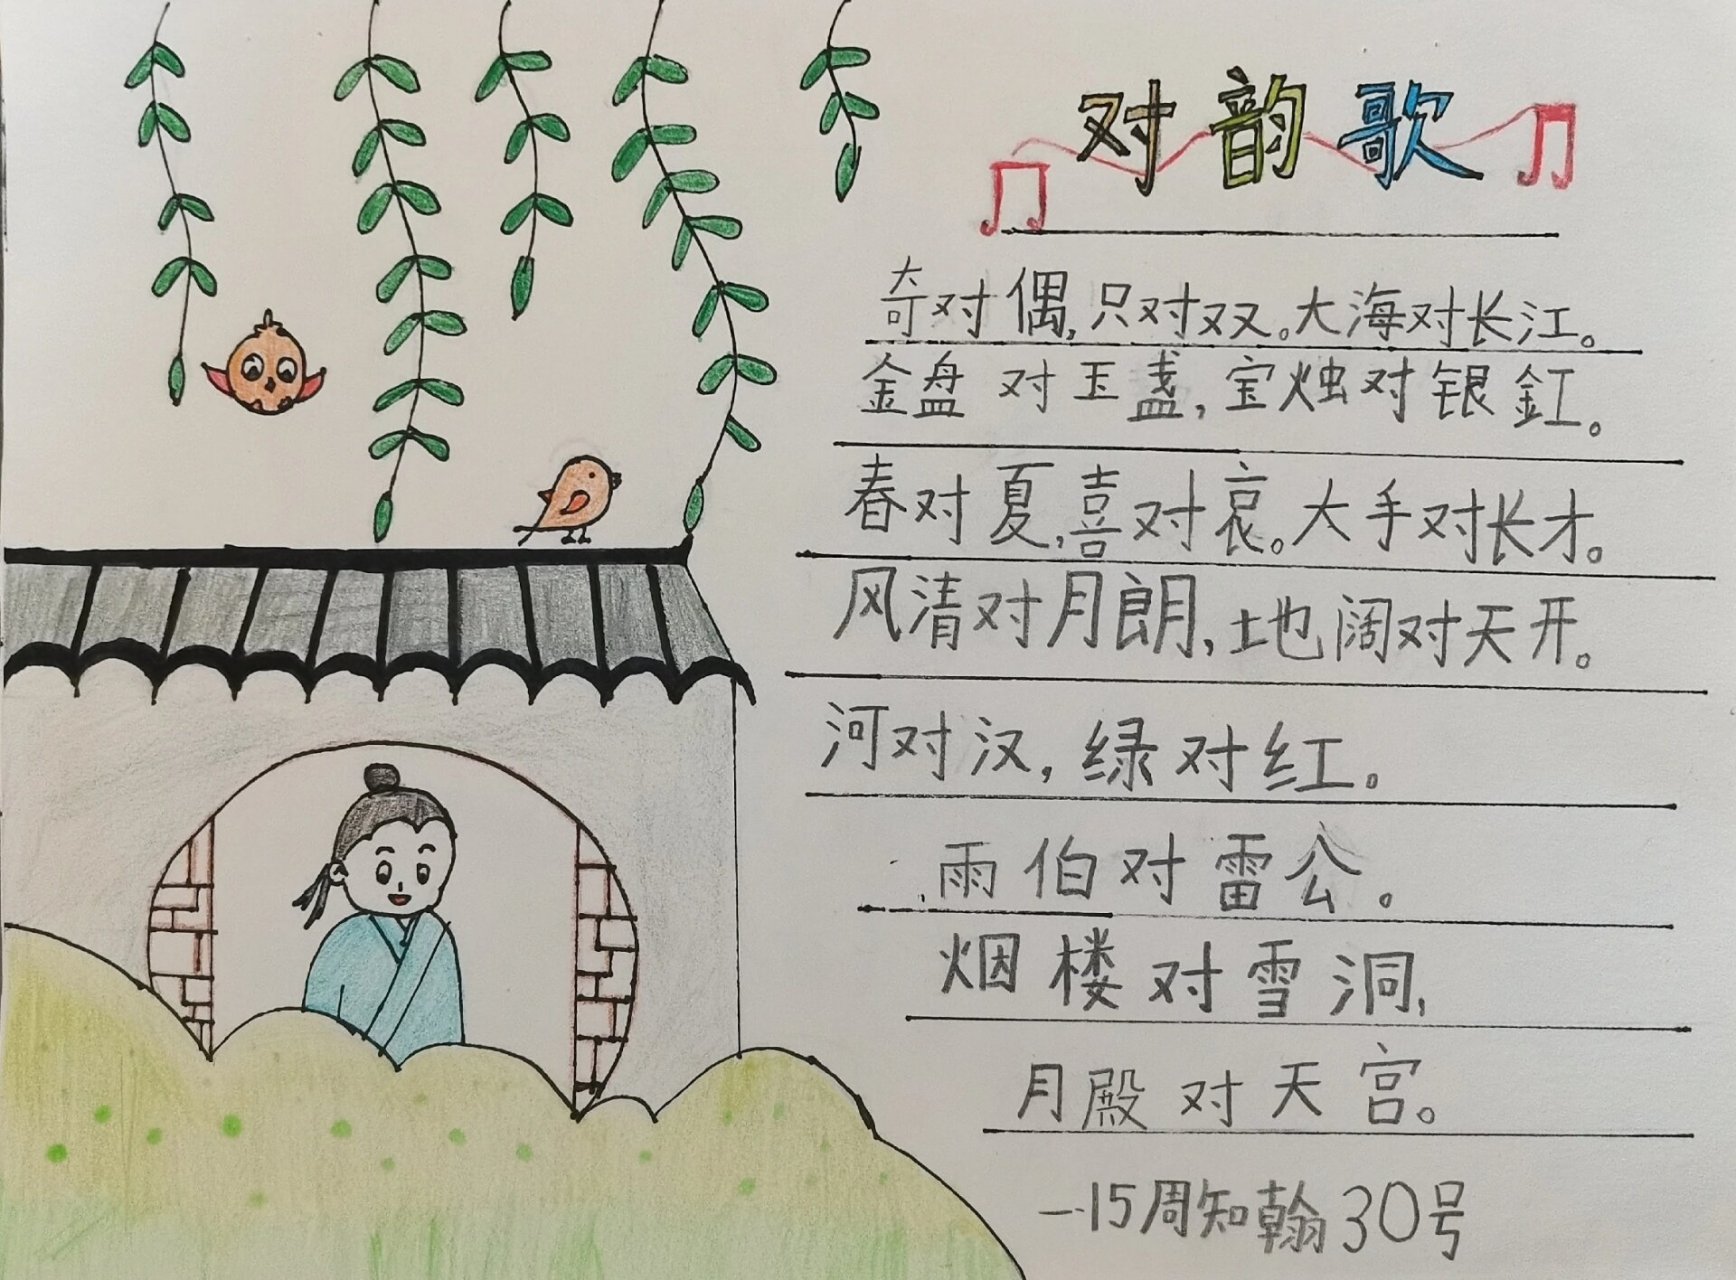 对韵歌
奇对偶,只对双。大海对长江。
金盘对玉盏,宝烛对银釭。
春对夏,喜对哀。大手对长才。
风清对月朗,地阔对天开。
河对汉,绿对红。
雨伯对雷公。
烟楼对雪洞,
月殿对天宫。
一·15周知翰30号